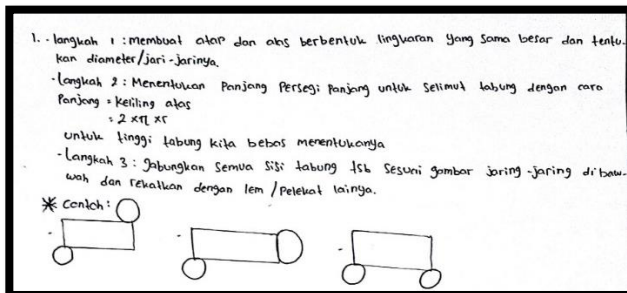 1. - langkah 1 : membuat atap dan alas berbentuk lingkaran yang sama besar dan tentu-
kan diameter/jari-jarinya.
- langkah 2 : Menentukan Panjang Persegi Panjang untuk Selimut tabung dengan cara
Panjang = Keliling alas
= 2 × π × r
untuk tinggi tabung kita bebas menentukanya
- Langkah 3 : Gabungkan Semua Sisi tabung tsb Sesuai gambar jaring-jaring dibaw-
wah dan rekatkan dengan lem / Pelekat lainya.
* Contoh :